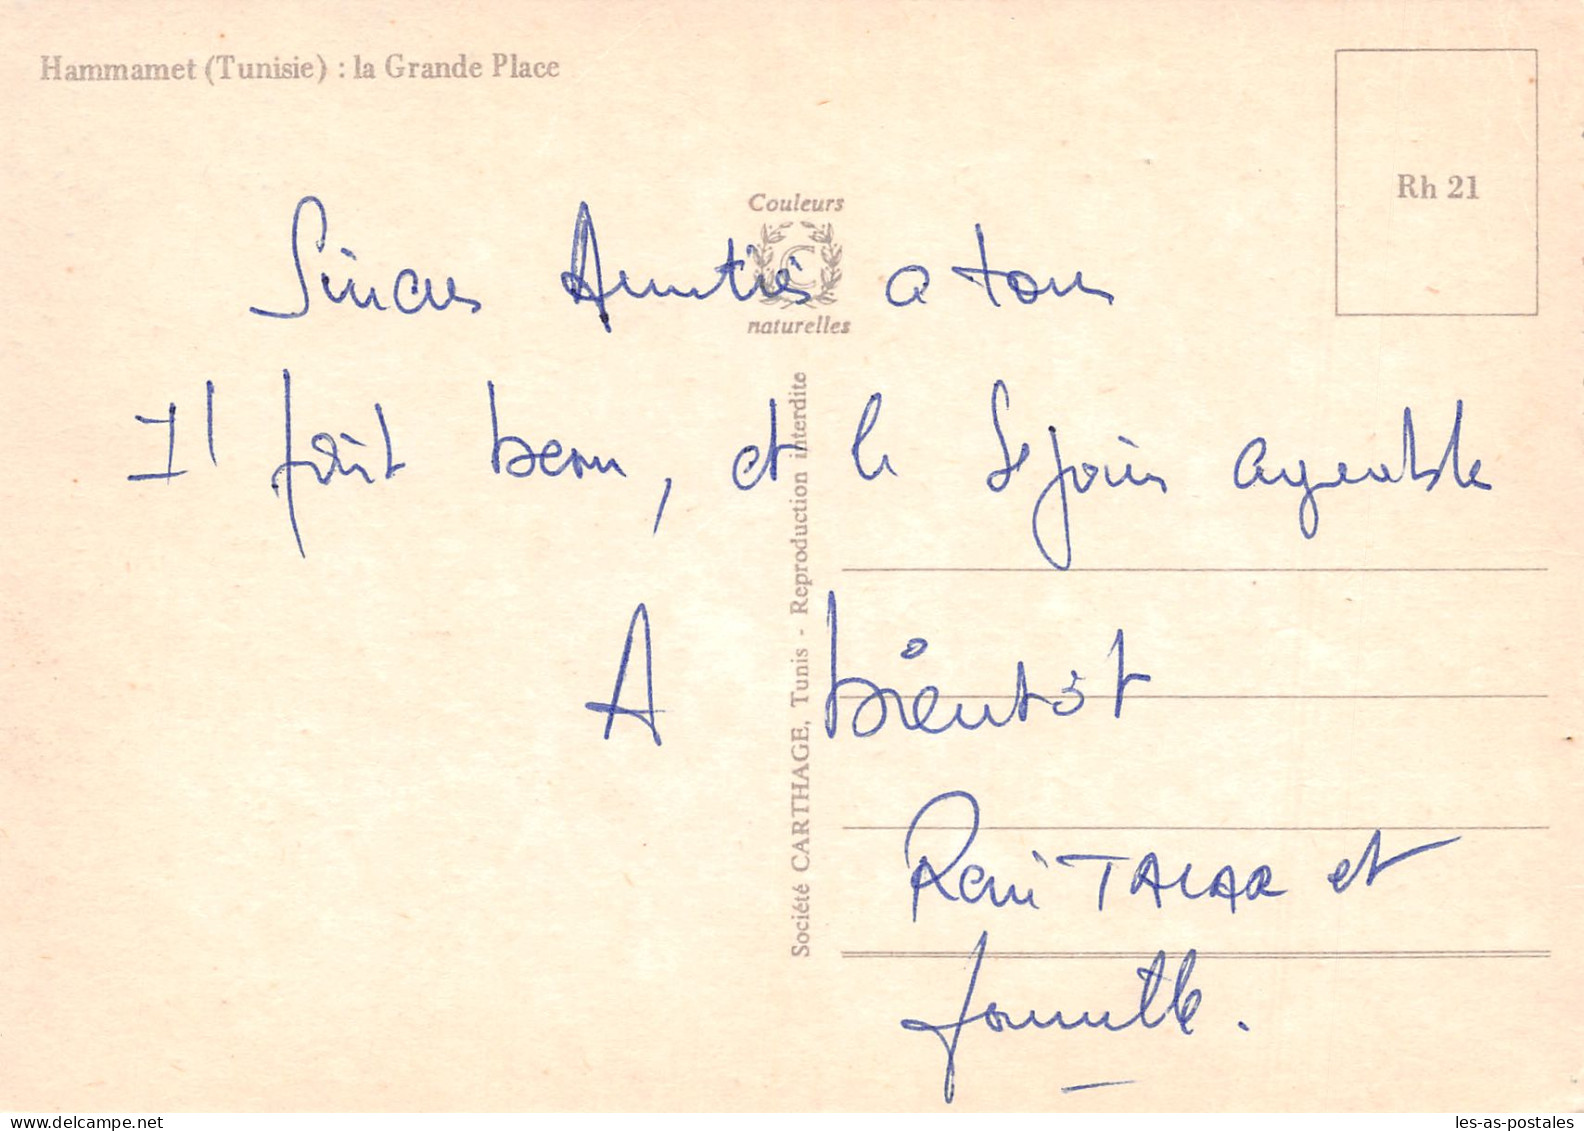 Hammamet (Tunisie) : la Grande Place
Rh 21
Couleurs
C
naturelles
Sincères Amitiés a tous
Il fait beau, et le Sejour agreable
A bientôt
René TALAR et
famille.
Société CARTHAGE, Tunis - Reproduction interdite
les-as-postales
les-as-postales.com